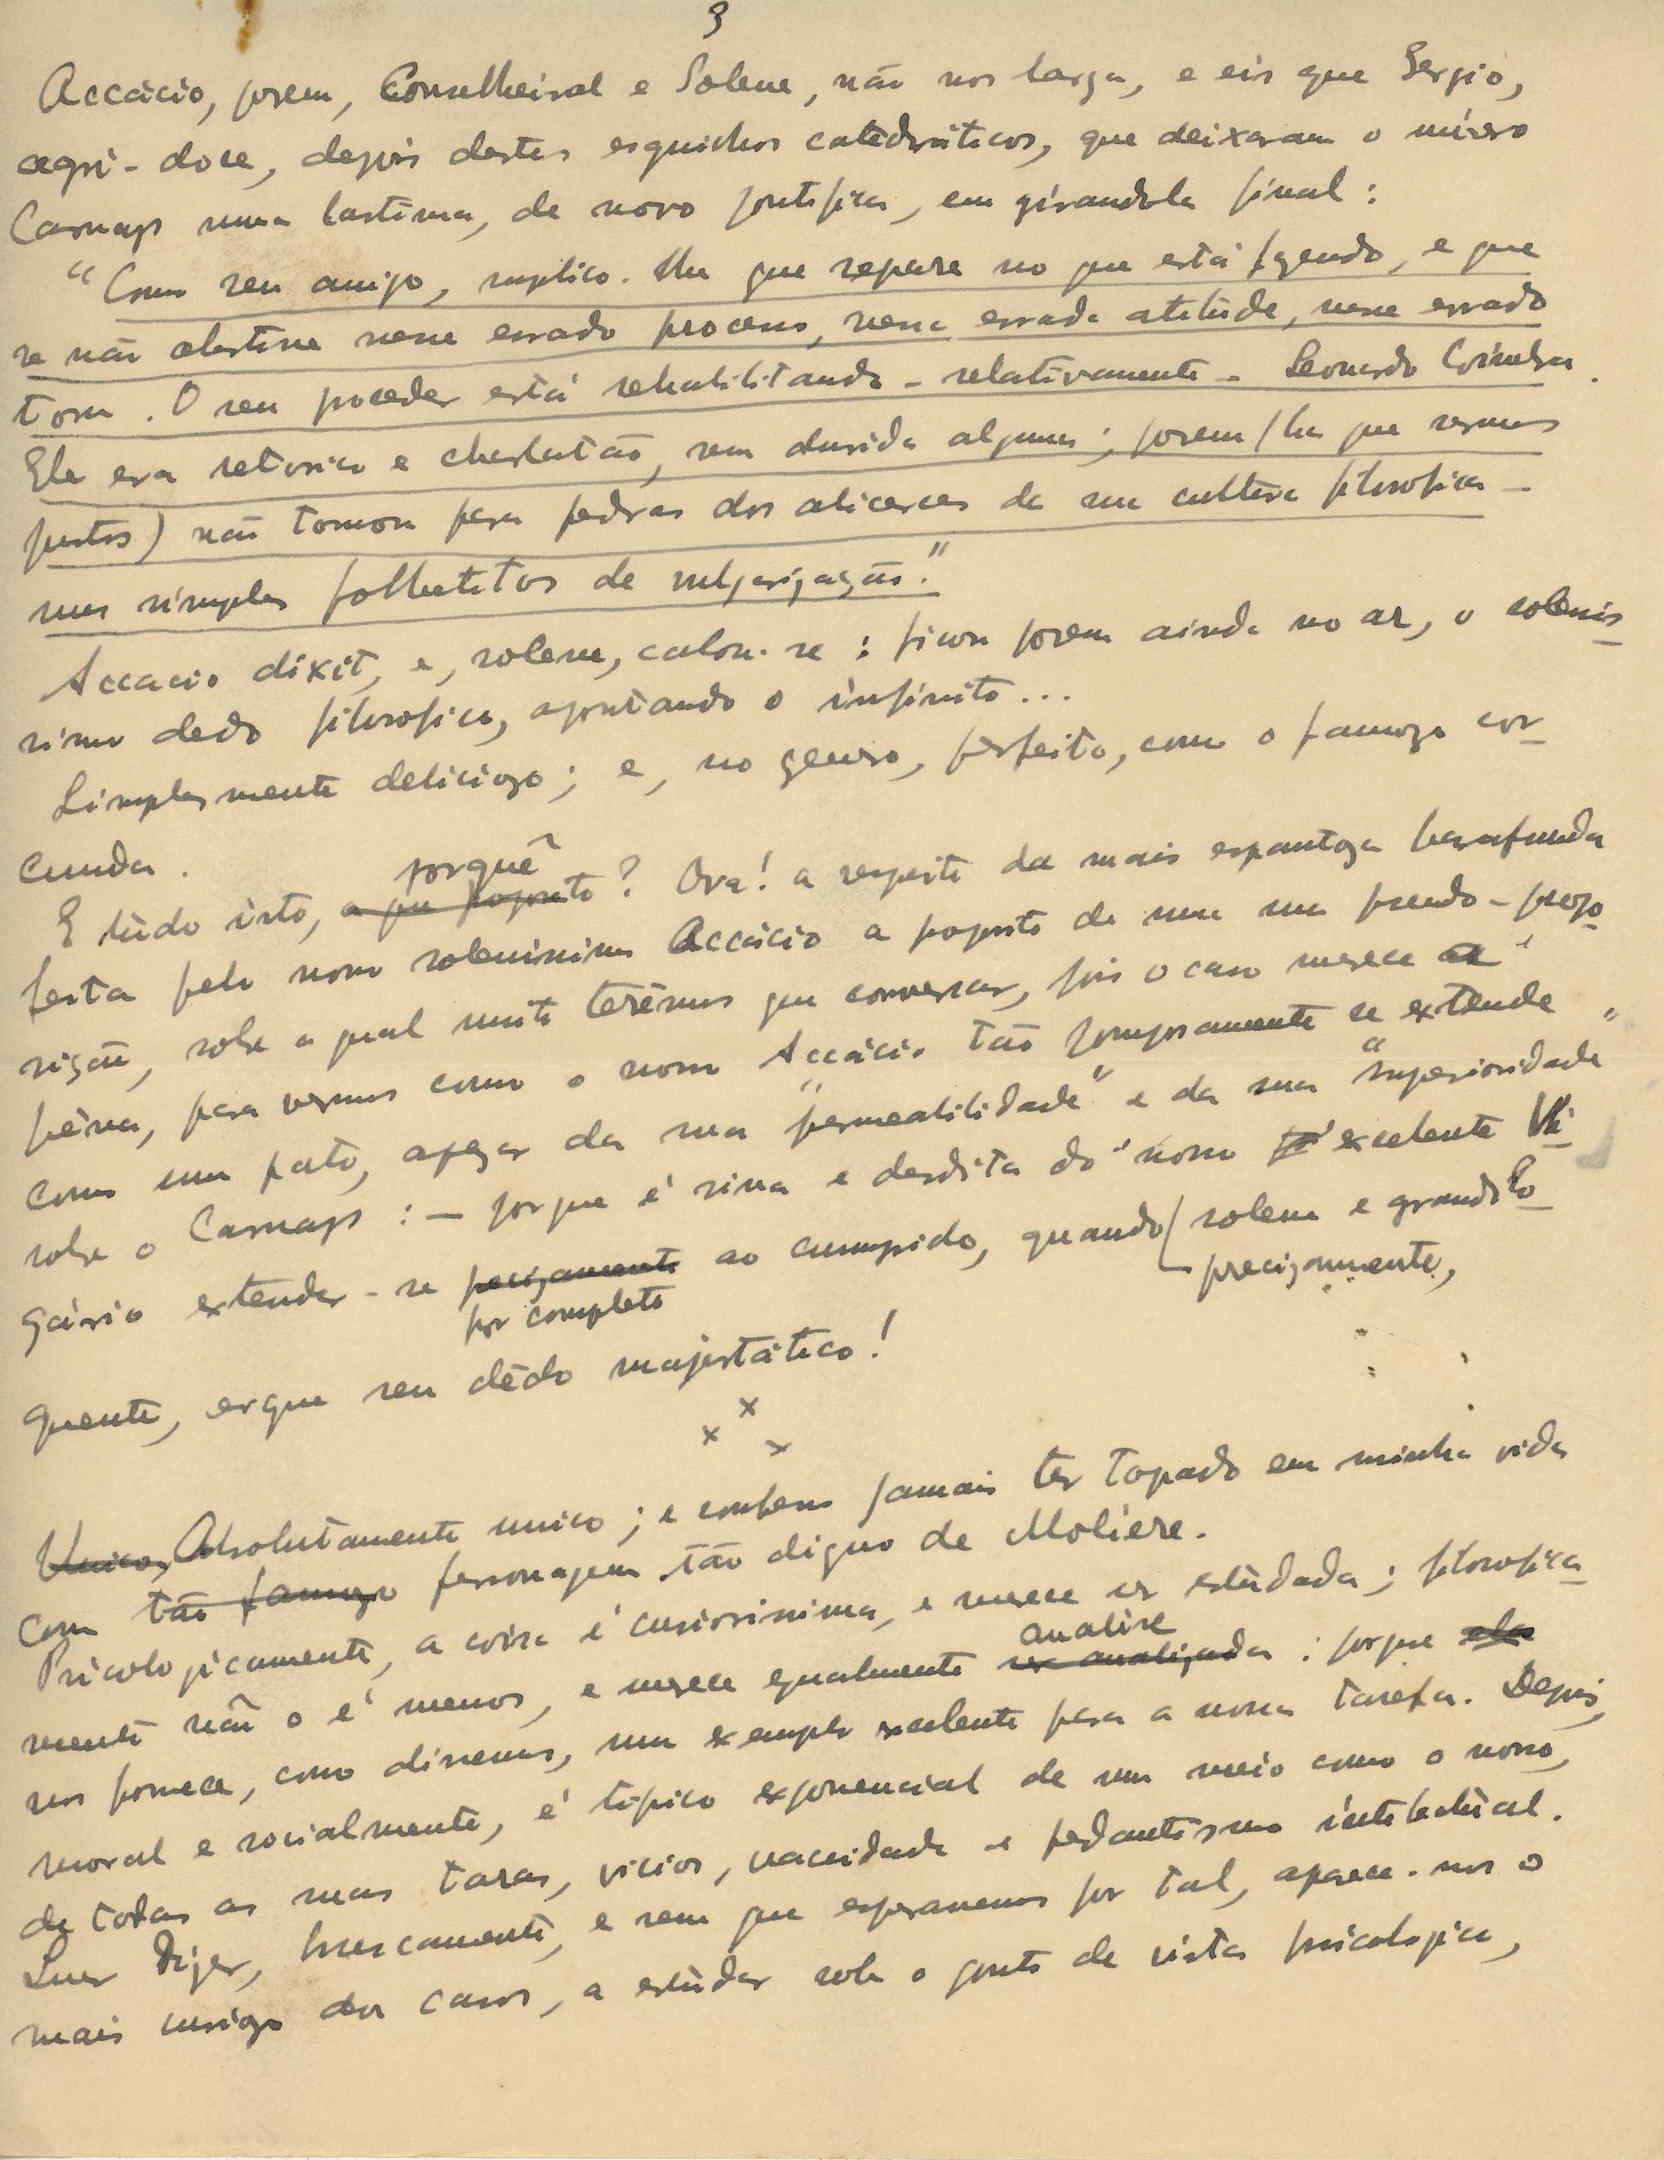 3
Accácio, porem, Conselheiral e Solene, não nos larga, e eis que Sergio,
agri-doce, depois destes esguichos catedráticos, que deixaram o mísero
Carnap numa lastima, de novo pontifica, em girandola final:
"Como seu amigo, suplico-lhe que repare no que está fazendo, e que
se não obstine nesse errado processo, nessa errada atitùde, nesse errado
tom. O seu proceder está rehabilitando - relativamente - Leonardo Coimbra.
Ele era retorico e charlatão, sem duvida alguma; porem (ha que sermos
justos) não tomou para pedras dos alicerces da sua cultura filosofica -
uns simples folhetitos de vulgarização."
Accacio dixit, e, solene, calou-se: ficou porem ainda no ar, o solenis-
simo dedo filosofico, apontando o infinito...
Simplesmente deliciozo; e, no genero, perfeito, como o famozo cor-
cunda.
porquê
E tùdo isto, a que proposito? Ora! a respeito da mais espantoza barafunda
feita pelo nosso solenissimo Accácio a proposito de uma sua pseudo-propo-
sição, sobre a qual muito terêmos que conversar, pois o caso merece a
pêna, para vermos como o nosso Accácio tão pomposamente se extende
como um pato, apezar da sua "permeabilidade" e da sua "superioridade"
sobre o Carnap: - porque é sina e desdita do nosso excelente Vi-
gário extender-se precizamente ao cumprido, quando solene e grandilo-
por completo
precizamente,
quente, ergue seu dêdo majestático!
x x x
Unico, Absolutamente unico; e confesso jamais ter topado em minha vida
com tão famozo personagem tão digno de Molière.
Psicologicamente, a coisa é curiosissima, e merece ser estùdada; filosofica-
analise
mente não o é menos, e merece egualmente ser analizada: porque ela
nos fornece, como dissemos, um exemplo excelente para a nossa tarefa. Depois,
moral e socialmente, é tipico exponencial de um meio como o nosso,
de todas as suas taras, vicios, vacuidade e pedantismo intelectùal.
Quer dizer, bruscamente, e sem que esperassemos por tal, aparece-nos o
mais curiozo dos casos, a estùdar sob o ponto de vista psicologico,